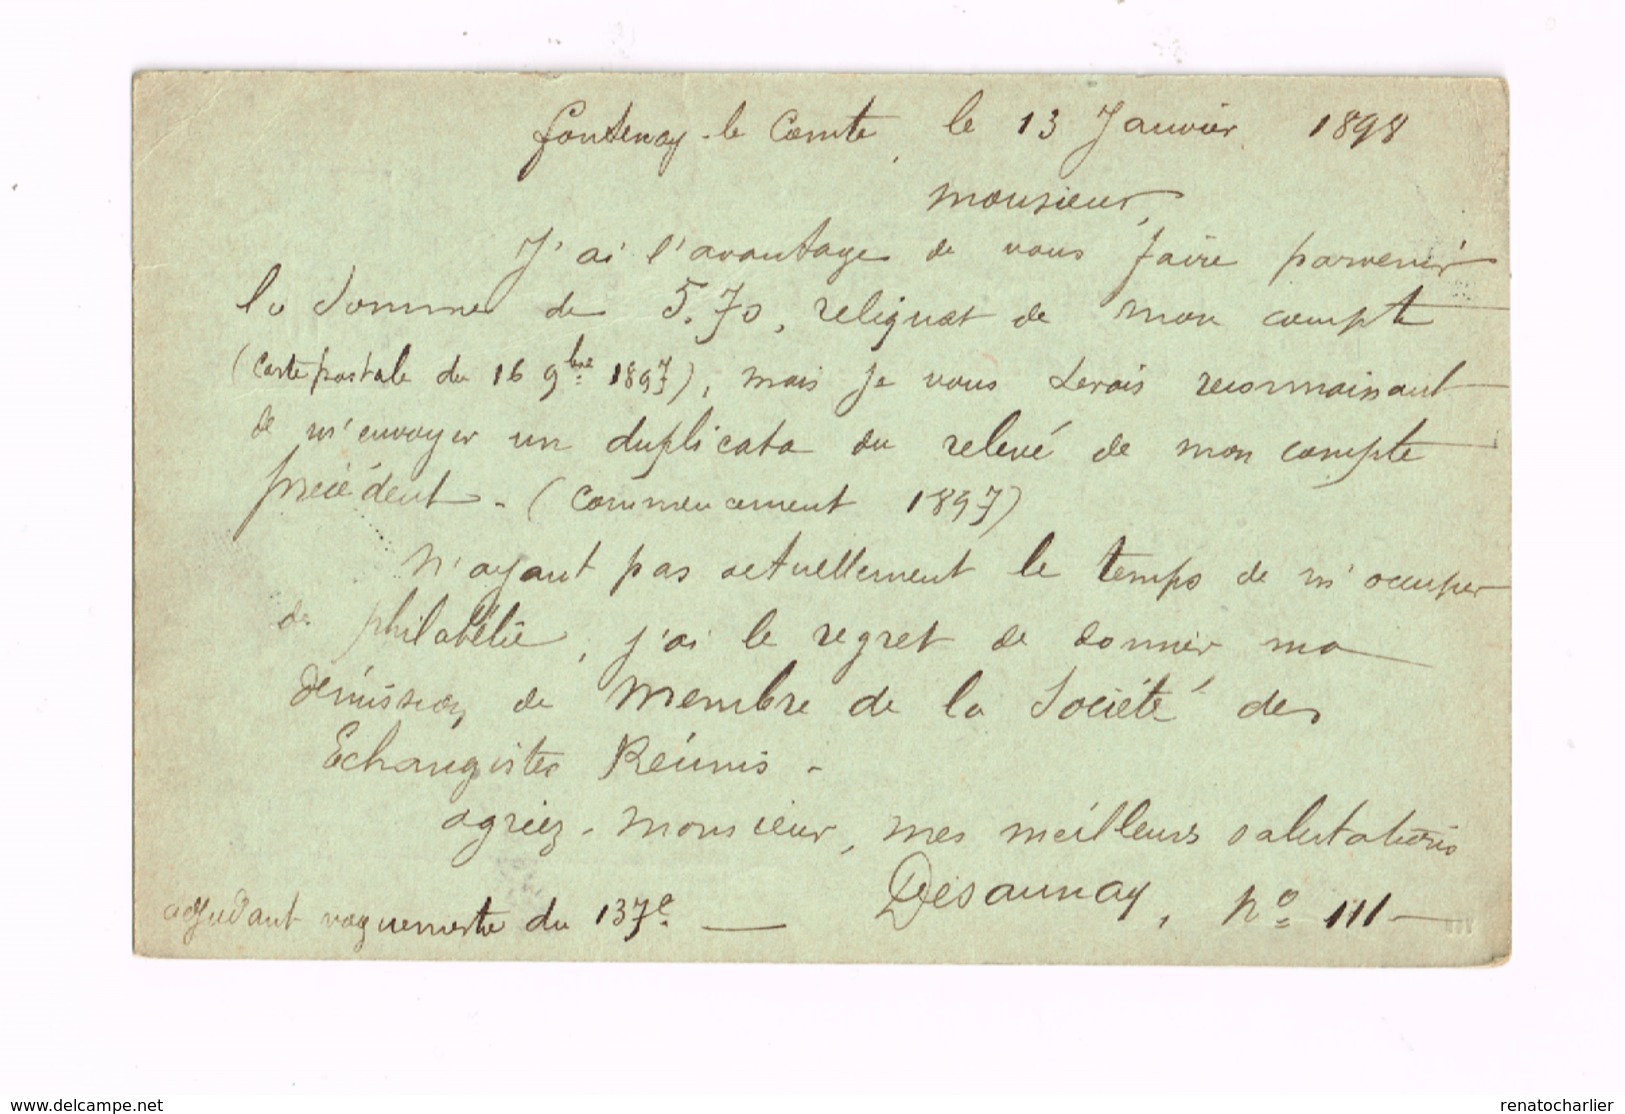 Fontenay-le Comte, le 13 Janvier 1898
Monsieur,
J'ai l'avantage de vous faire parvenir
la somme de 5.70, reliquat de mon compte
(carte postale du 16 9bre 1897), mais je vous serais reconnaissant
de m'envoyer un duplicata du relevé de mon compte
précédent - (commencement 1897)
N'ayant pas actuellement le temps de m'occuper
de philatélie, j'ai le regret de donner ma
démission de membre de la Société des
Echangistes Réunis -
agréez - monsieur, mes meilleurs salutations
Désaunay, No 111 -
adjudant vaguemestre du 137e. —
www.delcampe.net
renatocharlier